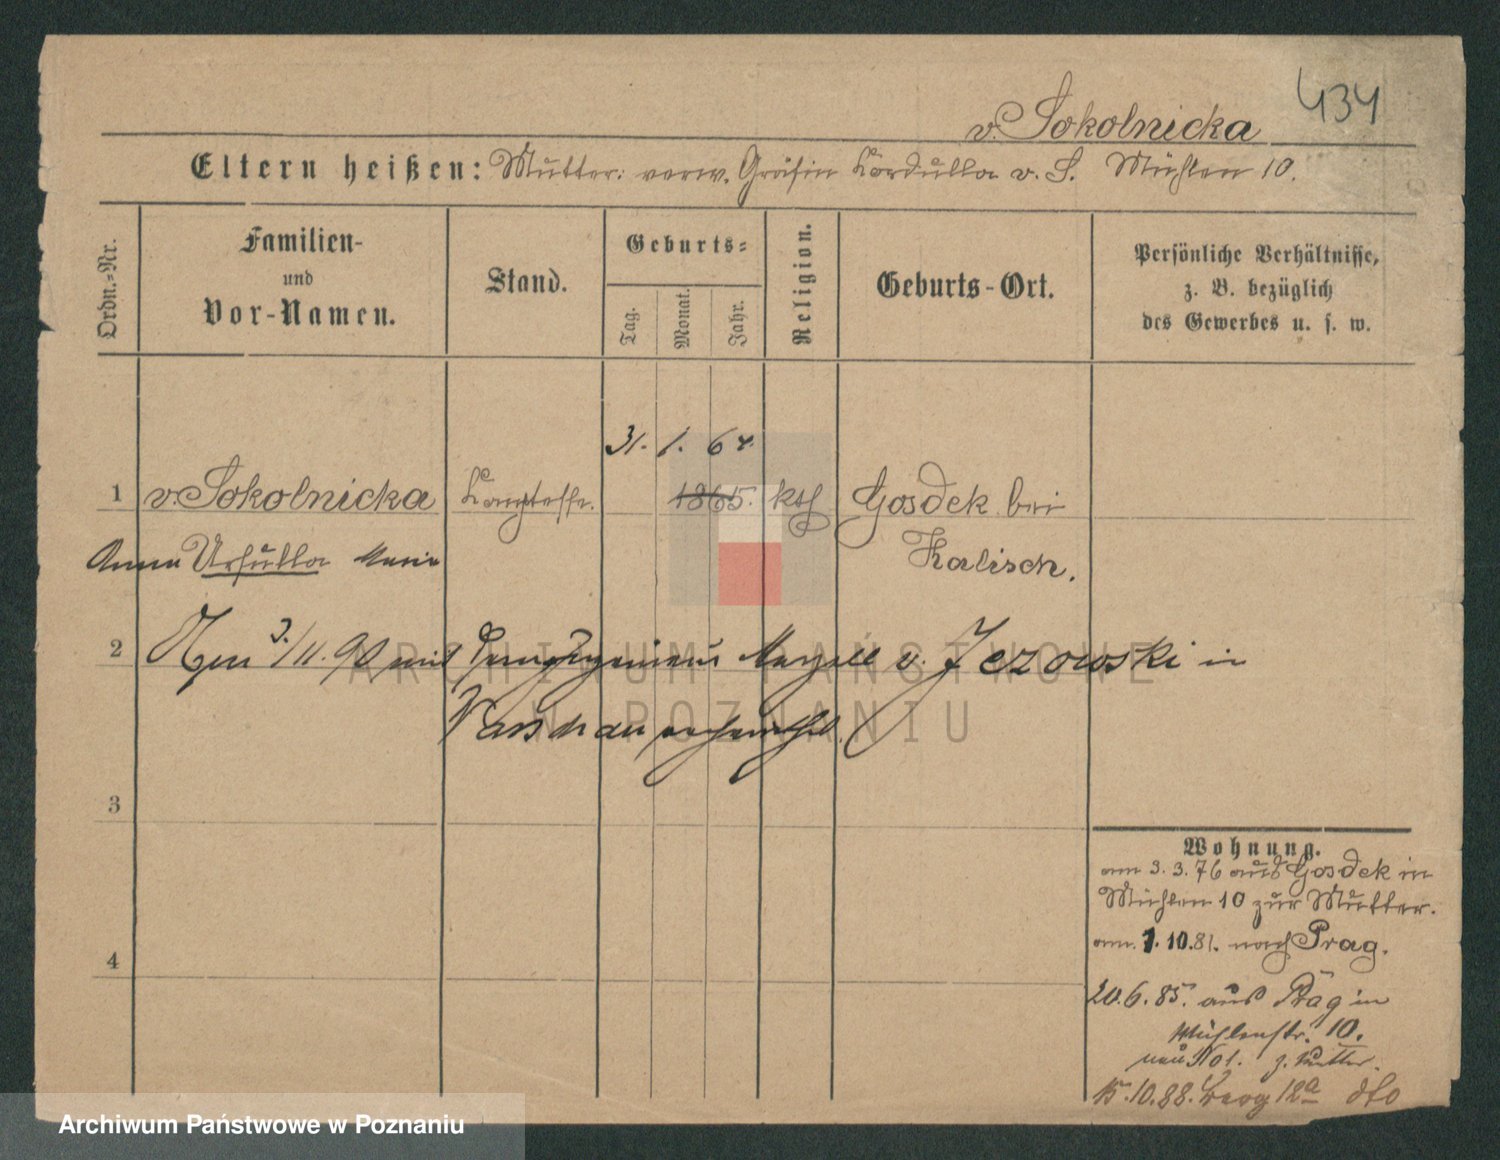 434
v. Sokolnicka
Eltern heißen: Mutter: verw. Gräfin Kordulla v. S. Mühlen 10.
Ordn.-Nr.
Familien-
und
Vor-Namen.
Stand.
Geburts-
Tag.
Monat.
Jahr.
Religion.
Geburts-Ort.
Persönliche Verhältnisse,
z. B. bezüglich
des Gewerbes u. s. w.
31. 1. 64.
1 v. Sokolnicka Komptesse. 1865. kth Gosdek bei
Anna Ursulla Maria Kalisch.
2 3./11. 90 mit v. Jezowski in
Warschau verheirathet.
3
4
Wohnung.
am 3. 3. 76 aus Gosdek in
Mühlen 10 zur Mutter.
am 1. 10. 81. nach Prag.
20. 6. 85. aus Prag in
Mühlenstr. 10.
neu No 1. z. Mutter.
15. 10. 88. Berg 12a dto
ARCHIWUM PAŃSTWOWE
W POZNANIU
Archiwum Państwowe w Poznaniu